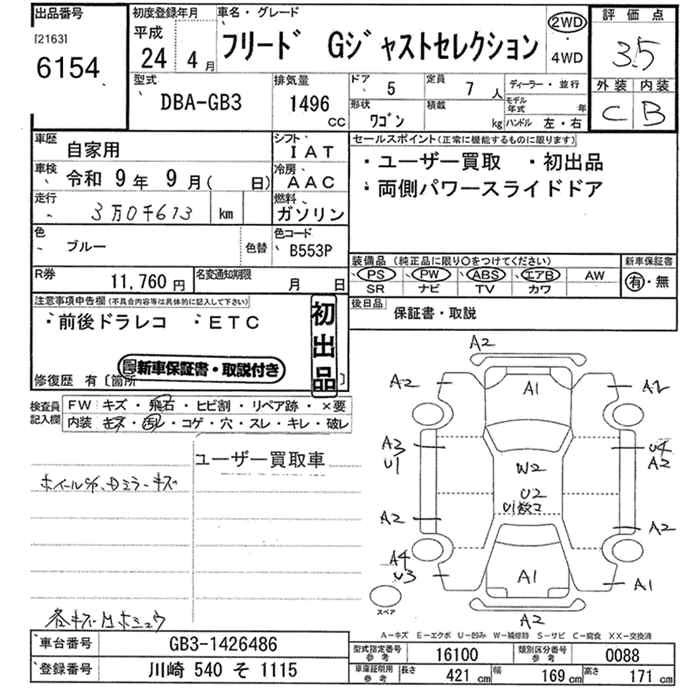 出品番号
[2163]
6154
初度登録年月
平成
24年4月
車名・グレード
フリード Gジャストセレクション
2WD
・
4WD
評価点
3.5
外装 内装
C B
型式
DBA-GB3
排気量
1496 cc
ドア 5
定員 7 人
ディーラー・並行
形状 ワゴン
積載 kg
モデル年式 年
ハンドル 左・右
車歴 自家用
シフト IAT
車検 令和 9年 9月( 日)
冷房 AAC
走行 3万0千613 km
燃料 ガソリン
色 ブルー
色替
色コード B553P
R券 11,760円
名変通知期限 月 日
セールスポイント(正常に機能するものに限ります)
・ユーザー買取 ・初出品
・両側パワースライドドア
装備品(純正品に限り○をつけてください)
新車保証書
PS PW ABS エアB AW
SR ナビ TV カワ
有・無
後日品 保証書・取説
注意事項申告欄(不具合内容等は具体的に記入して下さい)
・前後ドラレコ ・ETC
初出品
新車保証書・取説付き
修復歴 有[箇所 ]
検査員記入欄
FW キズ・飛石・ヒビ割・リペア跡・×要
内装 キズ・汚レ・コゲ・穴・スレ・キレ・破レ
ユーザー買取車
ホイールキズ、Dミラーキズ
A2
A2 A1 A2
A3 U1
U4 A2
W2
U2
A2 A2
A4 U3
A1 A1
A2
スペア
A-キズ E-エクボ U-凹み W-補修跡 S-サビ C-腐食 XX-交換済
車台番号 GB3-1426486
登録番号 川崎 540 そ 1115
型式指定番号 参考 16100
類別区分番号 参考 0088
車庫証明用 参考 長さ 421 cm 幅 169 cm 高さ 171 cm